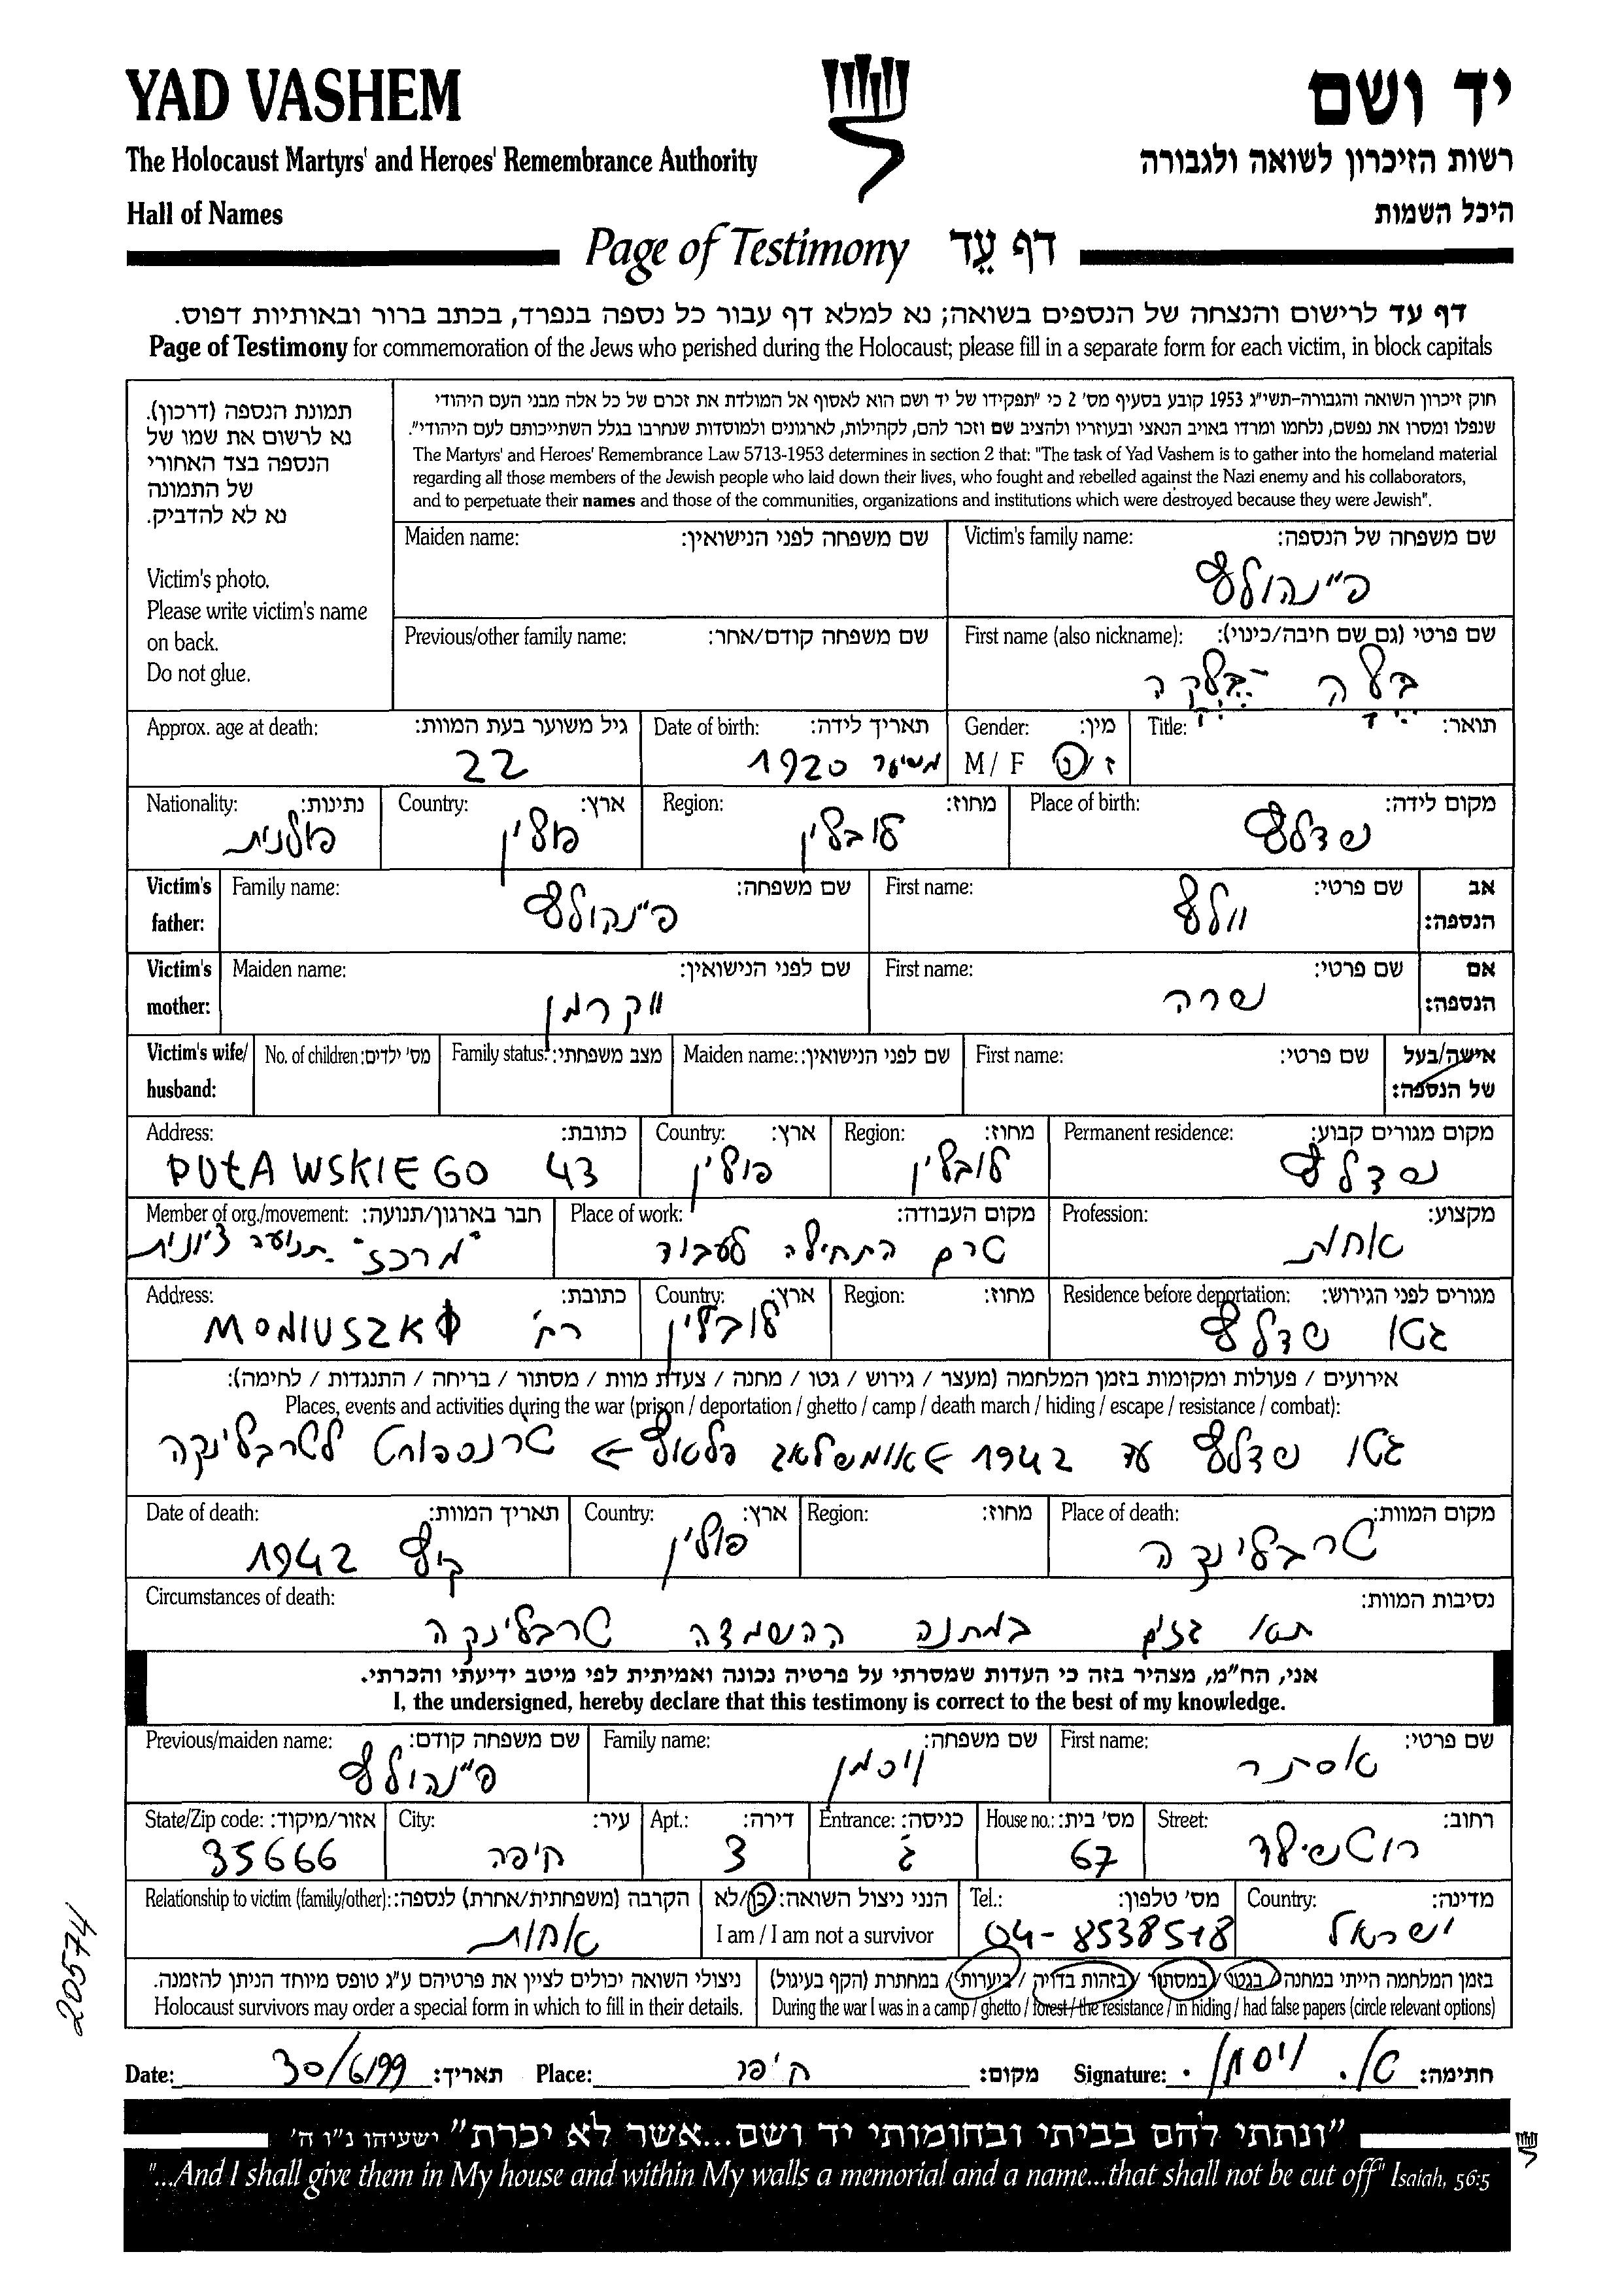 YAD VASHEM יד ושם
The Holocaust Martyrs' and Heroes' Remembrance Authority רשות הזיכרון לשואה ולגבורה
Hall of Names היכל השמות
Page of Testimony דף עֵד
דף עד לרישום והנצחה של הנספים בשואה; נא למלא דף עבור כל נספה בנפרד, בכתב ברור ובאותיות דפוס.
Page of Testimony for commemoration of the Jews who perished during the Holocaust; please fill in a separate form for each victim, in block capitals
תמונת הנספה (דרכון).
נא לרשום את שמו של
הנספה בצד האחורי
של התמונה
נא לא להדביק.
Victim's photo.
Please write victim's name
on back.
Do not glue.
חוק זיכרון השואה והגבורה-תשי"ג 1953 קובע בסעיף מס' 2 כי "תפקידו של יד ושם הוא לאסוף אל המולדת את זכרם של כל אלה מבני העם היהודי
שנפלו ומסרו את נפשם, נלחמו ומרדו באויב הנאצי ובעוזריו ולהציב שם וזכר להם, לקהילות, לארגונים ולמוסדות שנחרבו בגלל השתייכותם לעם היהודי".
The Martyrs' and Heroes' Remembrance Law 5713-1953 determines in section 2 that: "The task of Yad Vashem is to gather into the homeland material
regarding all those members of the Jewish people who laid down their lives, who fought and rebelled against the Nazi enemy and his collaborators,
and to perpetuate their names and those of the communities, organizations and institutions which were destroyed because they were Jewish".
Maiden name: שם משפחה לפני הנישואין: Victim's family name: שם משפחה של הנספה:
פיינהולץ
Previous/other family name: שם משפחה קודם/אחר: First name (also nickname): שם פרטי (גם שם חיבה/כינוי):
בלה - בלקה
Approx. age at death: גיל משוער בעת המוות: Date of birth: תאריך לידה: Gender: מין: Title: תואר:
22 משוער 1920 M / F ז / נ
Nationality: נתינות: Country: ארץ: Region: מחוז: Place of birth: מקום לידה:
פולנית פולין לובלין שדלץ
Victim's father: Family name: שם משפחה: First name: שם פרטי: אב הנספה:
פיינהולץ וולף
Victim's mother: Maiden name: שם לפני הנישואין: First name: שם פרטי: אם הנספה:
ווקרמן שרה
Victim's wife/ husband: No. of children: מס' ילדים: Family status: מצב משפחתי: Maiden name: שם לפני הנישואין: First name: שם פרטי: אישה/בעל של הנספה:
Address: כתובת: Country: ארץ: Region: מחוז: Permanent residence: מקום מגורים קבוע:
PUŁAWSKIEGO 43 פולין לובלין שדלץ
Member of org./movement: חבר בארגון/תנועה: Place of work: מקום העבודה: Profession: מקצוע:
"מרכז" תנועה ציונית טרם התחילה לעבוד אחות
Address: כתובת: Country: ארץ: Region: מחוז: Residence before deportation: מגורים לפני הגירוש:
רח' MONIUSZKO לובלין גטו שדלץ
אירועים / פעולות ומקומות בזמן המלחמה (מעצר / גירוש / גטו / מחנה / צעדת מוות / מסתור / בריחה / התנגדות / לחימה):
Places, events and activities during the war (prison / deportation / ghetto / camp / death march / hiding / escape / resistance / combat):
גטו שדלץ עד 1942 → אומשלאג פלאץ → טרנספורט לטרבלינקה
Date of death: תאריך המוות: Country: ארץ: Region: מחוז: Place of death: מקום המוות:
קיץ 1942 פולין טרבלינקה
Circumstances of death: נסיבות המוות:
תאי גזים במחנה ההשמדה טרבלינקה
אני, הח"מ, מצהיר בזה כי העדות שמסרתי על פרטיה נכונה ואמיתית לפי מיטב ידיעתי והכרתי.
I, the undersigned, hereby declare that this testimony is correct to the best of my knowledge.
Previous/maiden name: שם משפחה קודם: Family name: שם משפחה: First name: שם פרטי:
פיינהולץ ויסמן אסתר
State/Zip code: אזור/מיקוד: City: עיר: Apt.: דירה: Entrance: כניסה: House no.: מס' בית: Street: רחוב:
35666 חיפה 3 ג 67 רוטשילד
Relationship to victim (family/other): הקרבה (משפחתית/אחרת) לנספה: הנני ניצול השואה: כן/לא Tel.: מס' טלפון: Country: מדינה:
אחות I am / I am not a survivor 04-8538518 ישראל
ניצולי השואה יכולים לציין את פרטיהם ע"ג טופס מיוחד הניתן להזמנה. בזמן המלחמה הייתי במחנה/בגטו/במסתור/בזהות בדויה/ביערות/במחתרת (הקף בעיגול)
Holocaust survivors may order a special form in which to fill in their details. During the war I was in a camp / ghetto / forest / the resistance / in hiding / had false papers (circle relevant options)
Date: 30/6/99 תאריך: Place: חיפה מקום: Signature: א. ויסמן חתימה:
"ונתתי להם בביתי ובחומותי יד ושם...אשר לא יכרת" ישעיהו נ"ו ה'
"...And I shall give them in My house and within My walls a memorial and a name...that shall not be cut off" Isaiah, 56:5
20574